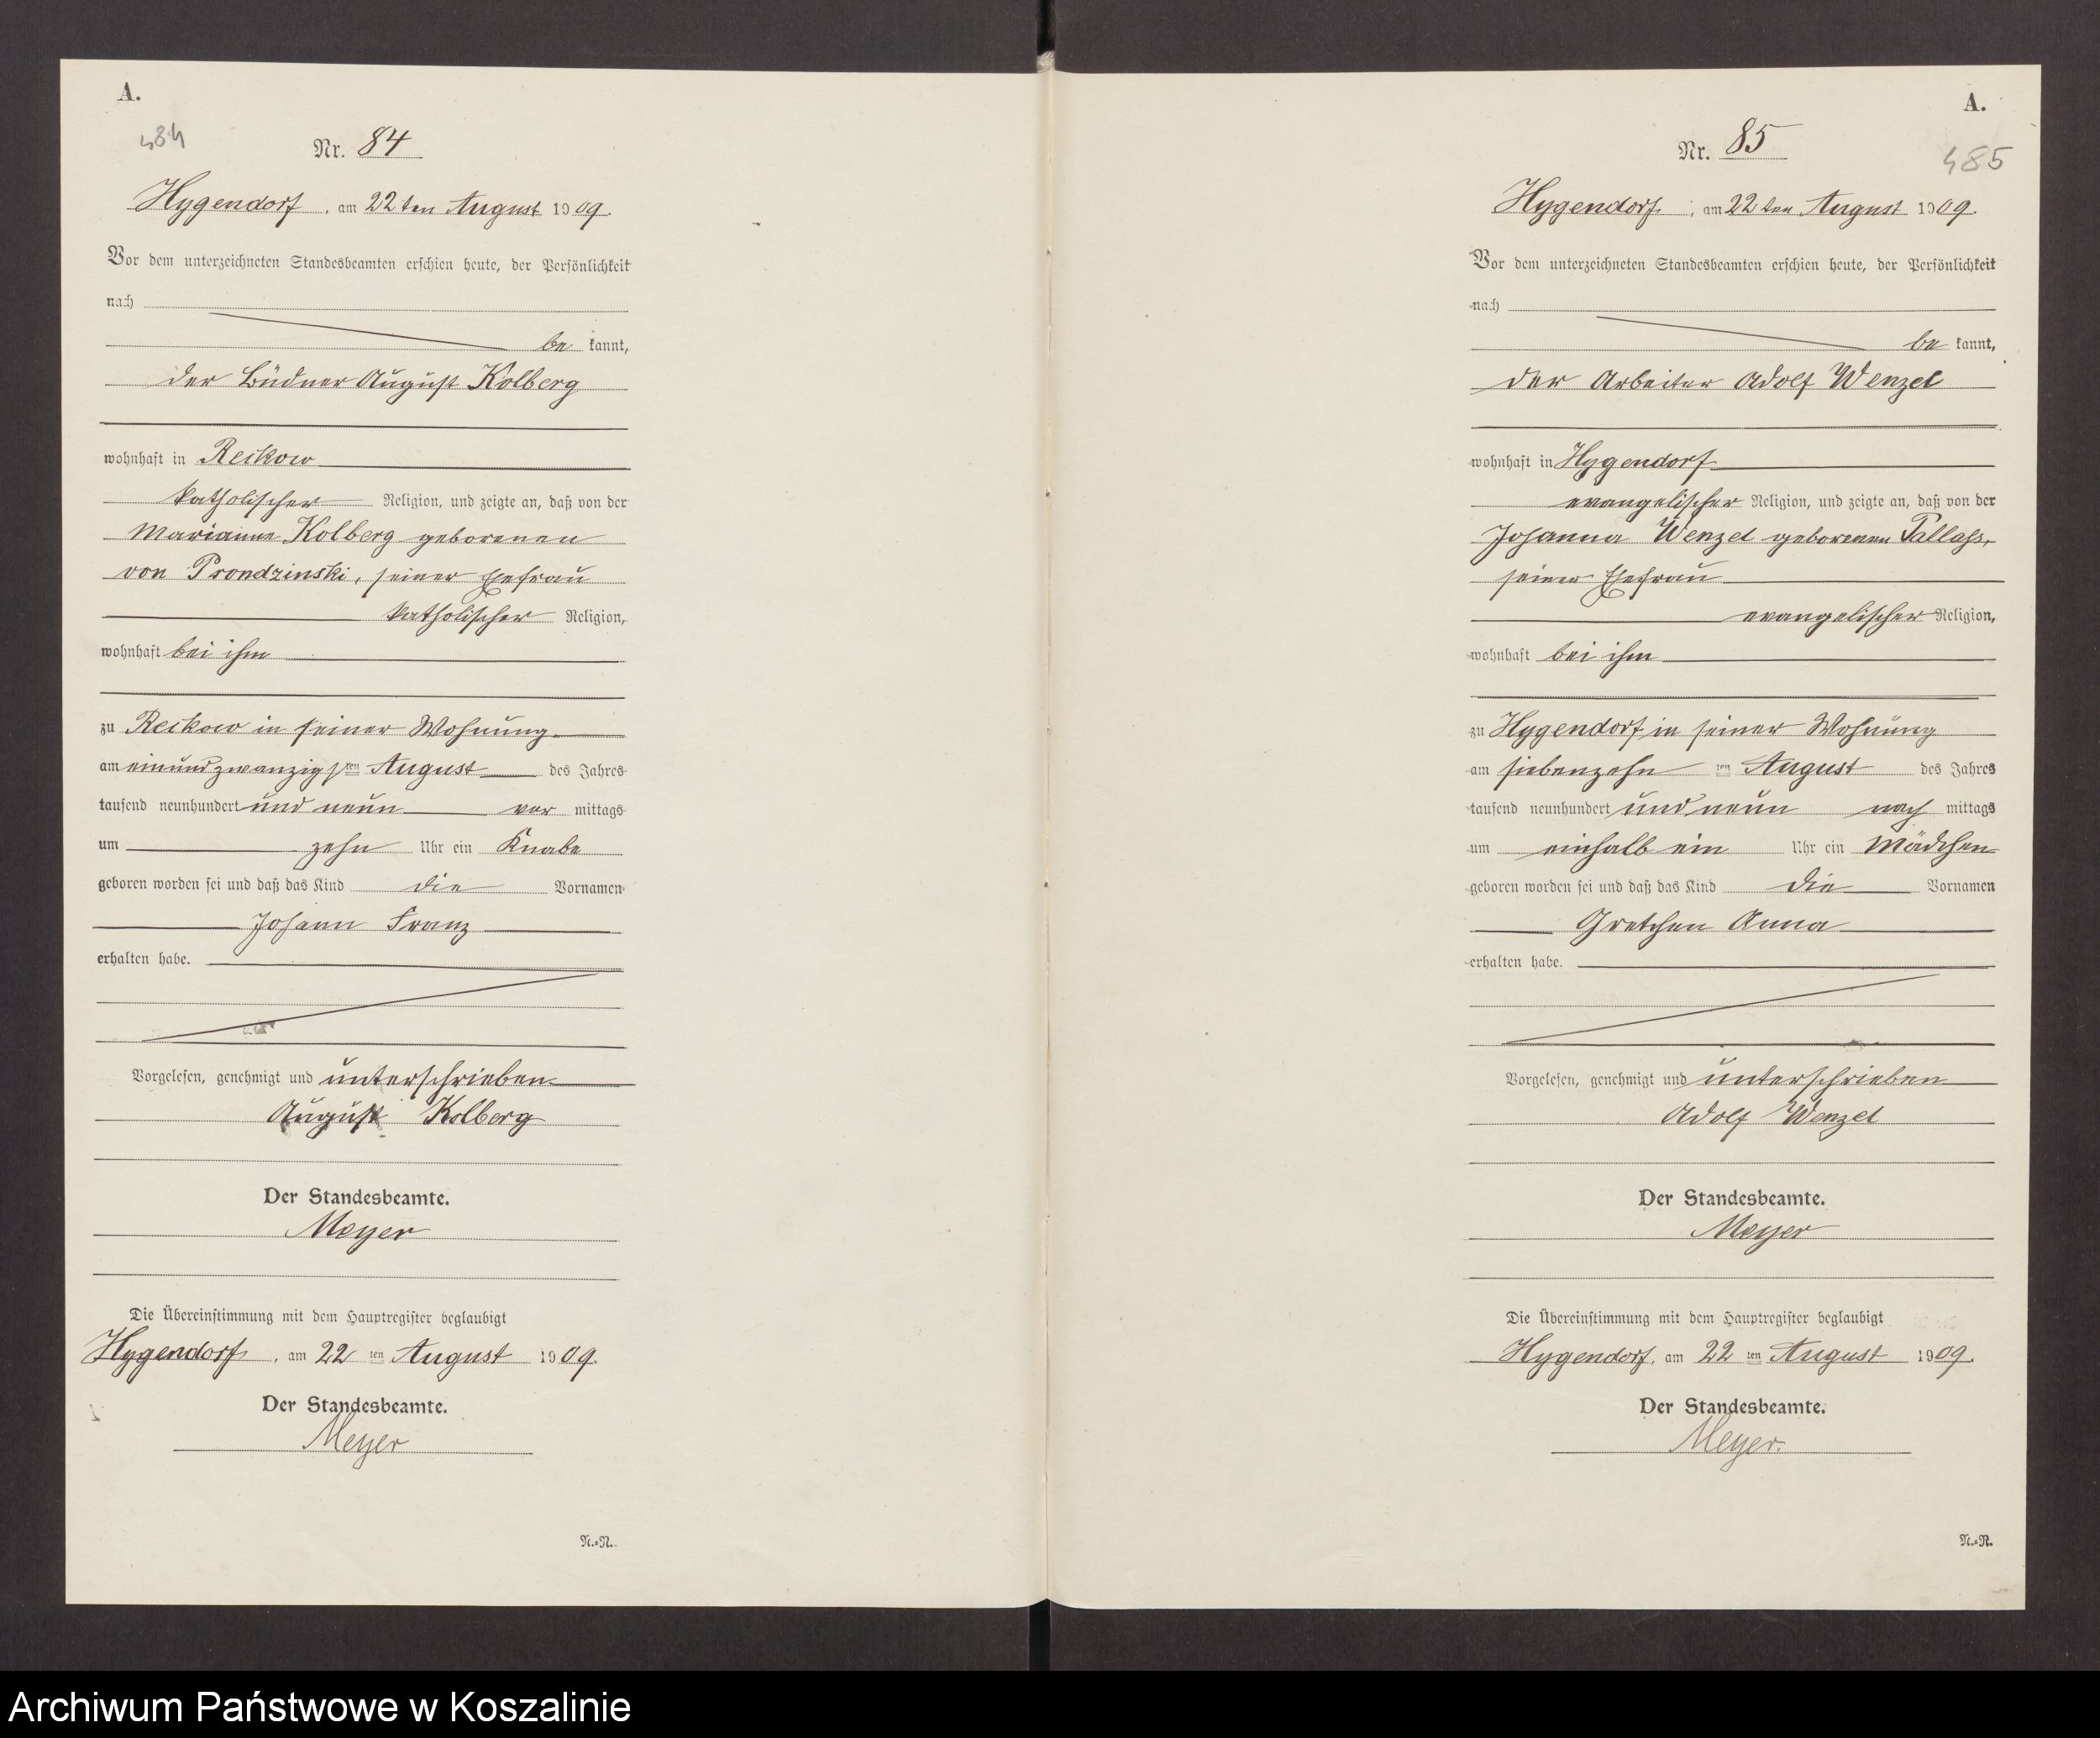 A.
484
Nr. 84
Hygendorf, am 22ten August 1909.
Vor dem unterzeichneten Standesbeamten erschien heute, der Persönlichkeit
nach
be kannt,
der Büdner August Kolberg
wohnhaft in Reckow
katholischer Religion, und zeigte an, daß von der
Marianna Kolberg geborenen
von Prondzinski, seiner Ehefrau
katholischer Religion,
wohnhaft bei ihm
zu Reckow in seiner Wohnung
am einundzwanzigsten August des Jahres
tausend neunhundert und neun vor mittags
um zehn Uhr ein Knabe
geboren worden sei und daß das Kind die Vornamen
Johann Franz
erhalten habe.
Vorgelesen, genehmigt und unterschrieben
August Kolberg
Der Standesbeamte.
Meyer
Die Übereinstimmung mit dem Hauptregister beglaubigt
Hygendorf, am 22 ten August 1909.
Der Standesbeamte.
Meyer
N.=N.
A.
485
Nr. 85
Hygendorf, am 22ten August 1909.
Vor dem unterzeichneten Standesbeamten erschien heute, der Persönlichkeit
nach
be kannt,
der Arbeiter Adolf Wenzel
wohnhaft in Hygendorf
evangelischer Religion, und zeigte an, daß von der
Johanna Wenzel geborenen Pallaß,
seiner Ehefrau
evangelischer Religion,
wohnhaft bei ihm
zu Hygendorf in seiner Wohnung
am siebenzehn ten August des Jahres
tausend neunhundert und neun nach mittags
um einhalb ein Uhr ein Mädchen
geboren worden sei und daß das Kind die Vornamen
Gretchen Anna
erhalten habe.
Vorgelesen, genehmigt und unterschrieben
Adolf Wenzel
Der Standesbeamte.
Meyer
Die Übereinstimmung mit dem Hauptregister beglaubigt
Hygendorf, am 22 ten August 1909.
Der Standesbeamte.
Meyer.
N.=N.
Archiwum Państwowe w Koszalinie